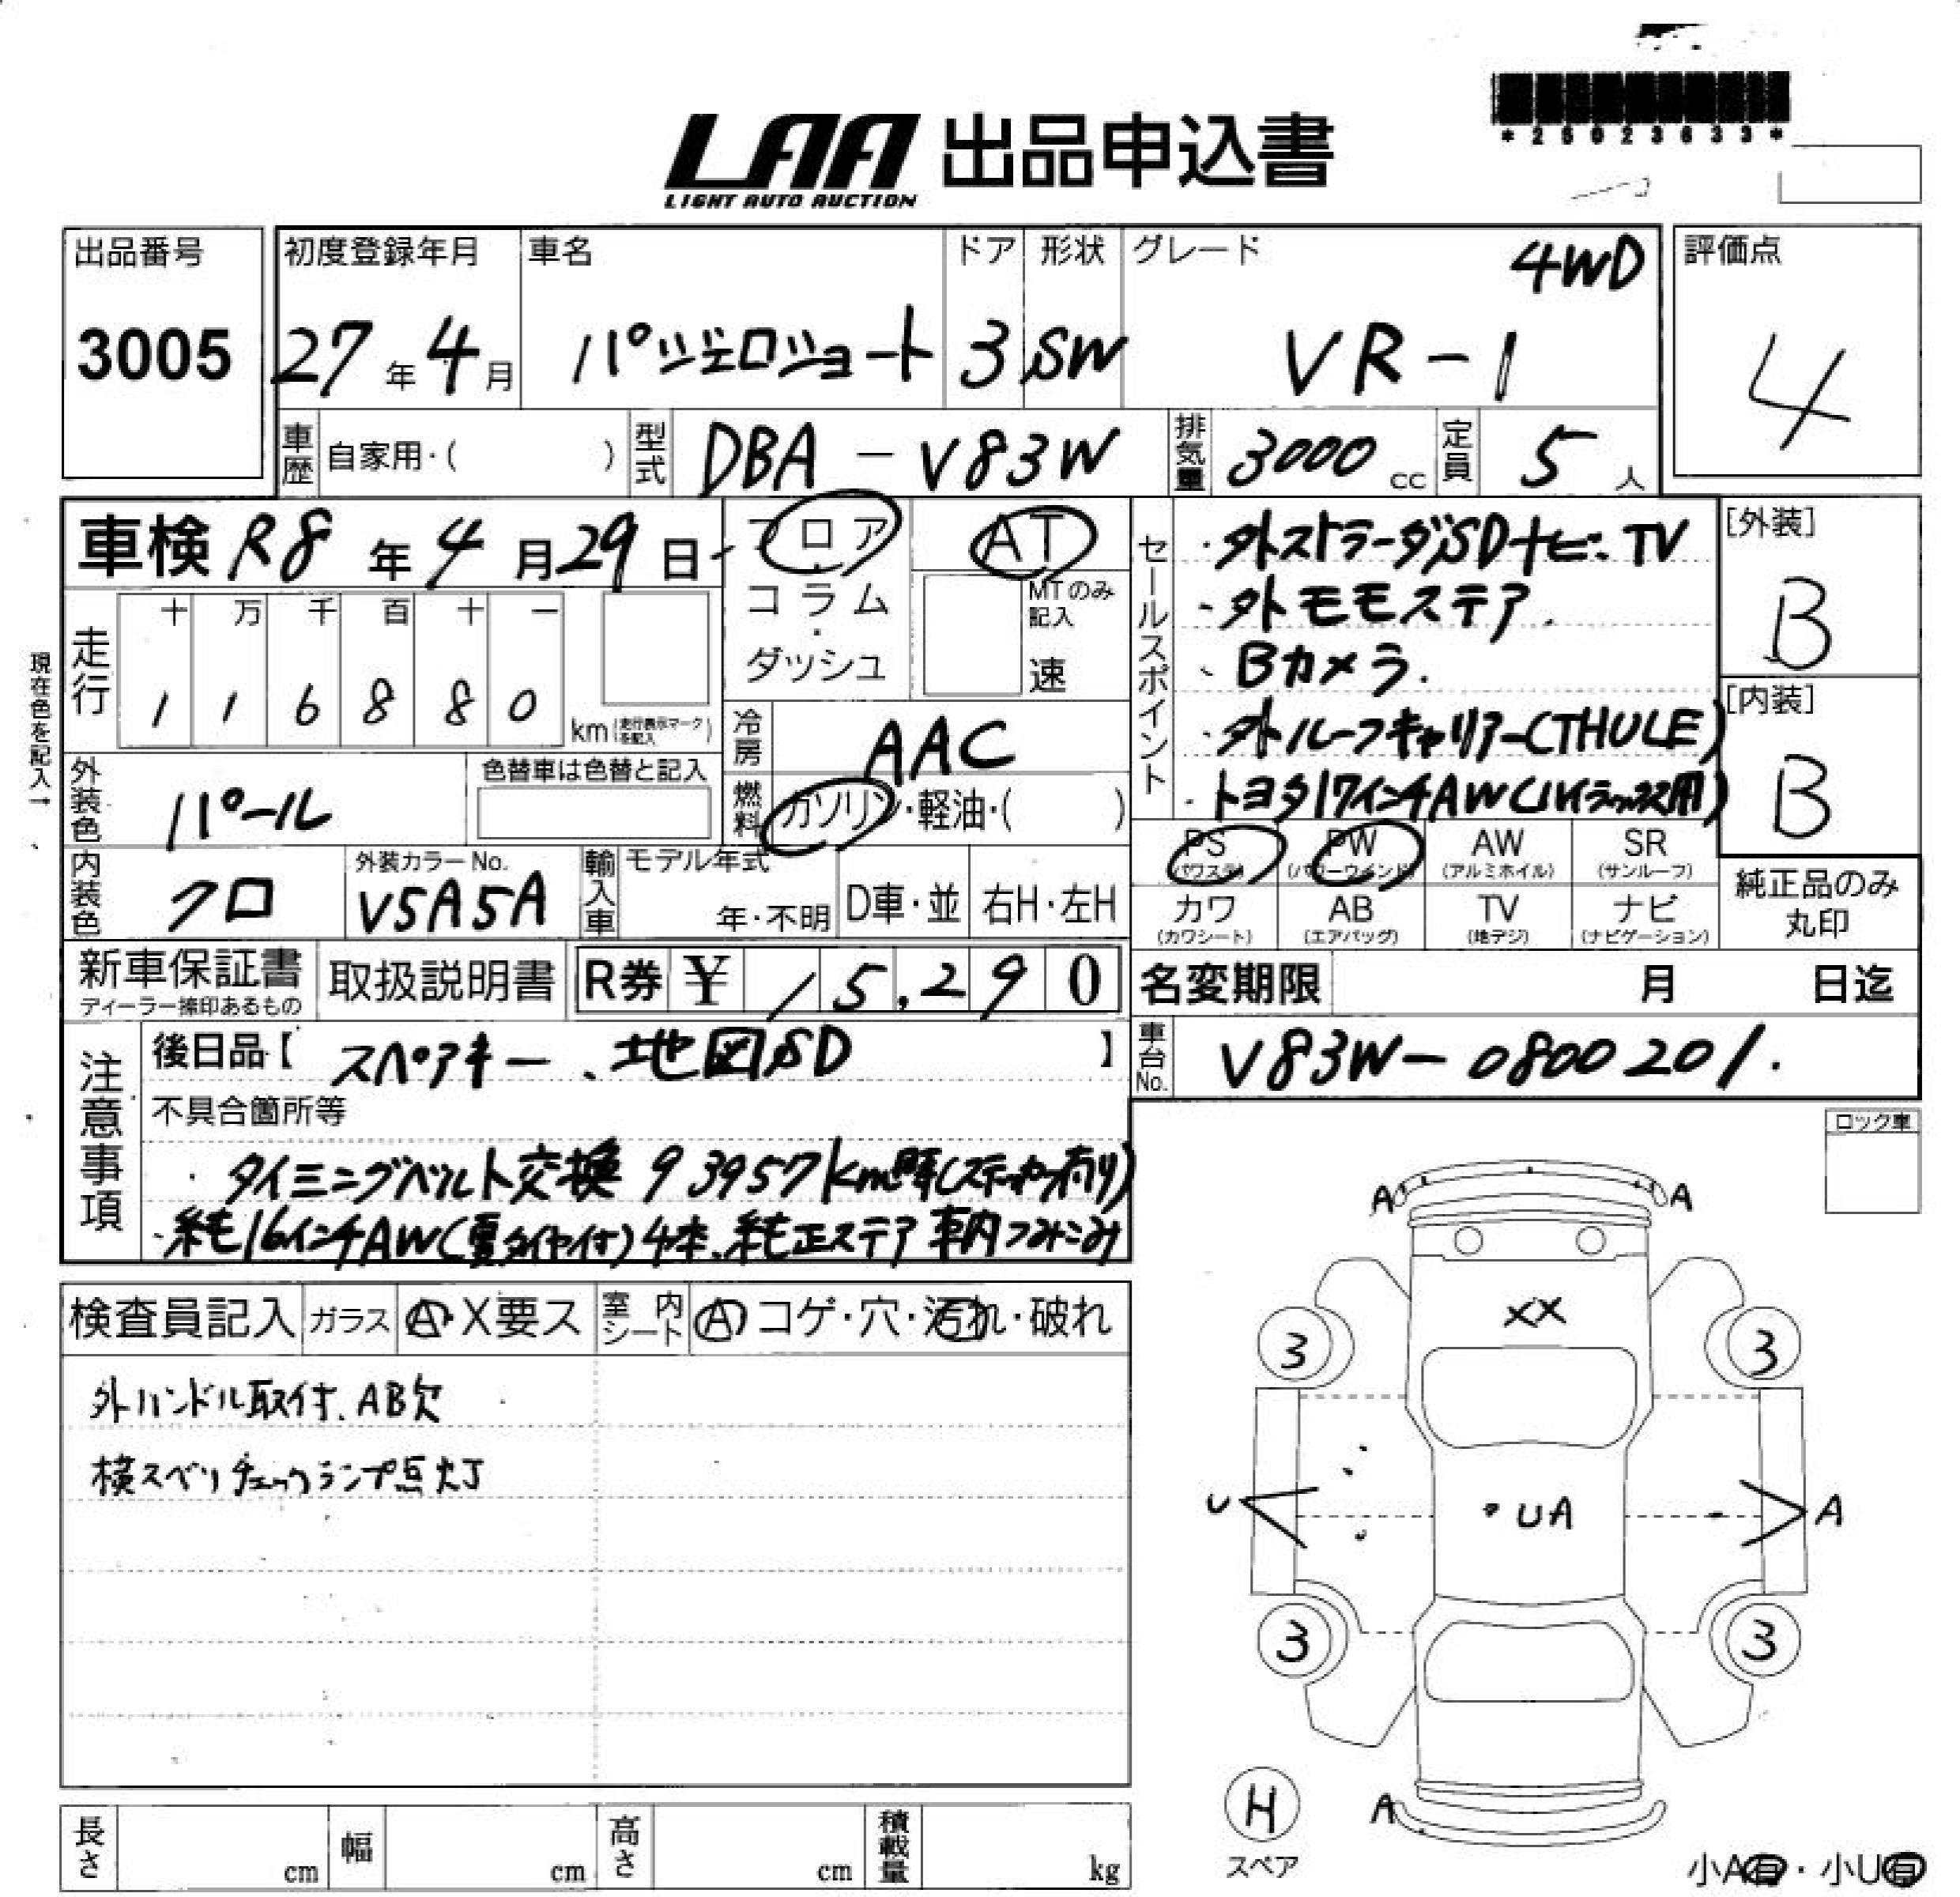 *25023633*
LAA 出品申込書
LIGHT AUTO AUCTION
出品番号 3005
初度登録年月 27年4月
車名 パジェロショート
ドア 3
形状 SW
グレード 4WD VR-1
評価点 4
車歴 自家用・( )
型式 DBA-V83W
排気量 3000 cc
定員 5 人
車検 R8年4月29日
フロア・コラム・ダッシュ
AT
MTのみ記入 速
セールスポイント
・外ストラーダSDナビ、TV
・外モモステア.
・Bカメラ.
・外ルーフキャリアー(THULE)
・トヨタ17インチAW(ハイラックス用)
[外装] B
[内装] B
現在色を記入→
走行 十 万 千 百 十 一
1 1 6 8 8 0 km (走行表示マークを記入)
冷房 AAC
燃料 ガソリン・軽油・( )
外装色 パール
色替車は色替と記入
内装色 クロ
外装カラーNo. V5A5A
輸入車 モデル年式 年・不明 D車・並 右H・左H
PS (パワステ) PW (パワーウインド) AW (アルミホイル) SR (サンルーフ)
カワ (カワシート) AB (エアバッグ) TV (地デジ) ナビ (ナビゲーション)
純正品のみ丸印
新車保証書 ディーラー捺印あるもの
取扱説明書
R券 ¥ 15,290
名変期限 月 日迄
車台No. V83W-0800201.
注意事項
後日品【スペアキー、地図SD】
不具合箇所等
・タイミングベルト交換 93957km時(ステッカー有り)
・純正16インチAW(夏タイヤ付)4本、純正ステア 車内つみこみ
ロック車
検査員記入 ガラス A・X要ス 室内シート A コゲ・穴・汚れ・破れ
外ハンドル取付、AB欠
横スベリチェックランプ点灯
A A
XX
3 3
U ・UA A
3 3
H
スペア
A
小A有・小U有
長さ cm 幅 cm 高さ cm 積載量 kg